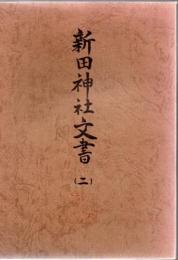 新田神社文書
(二)